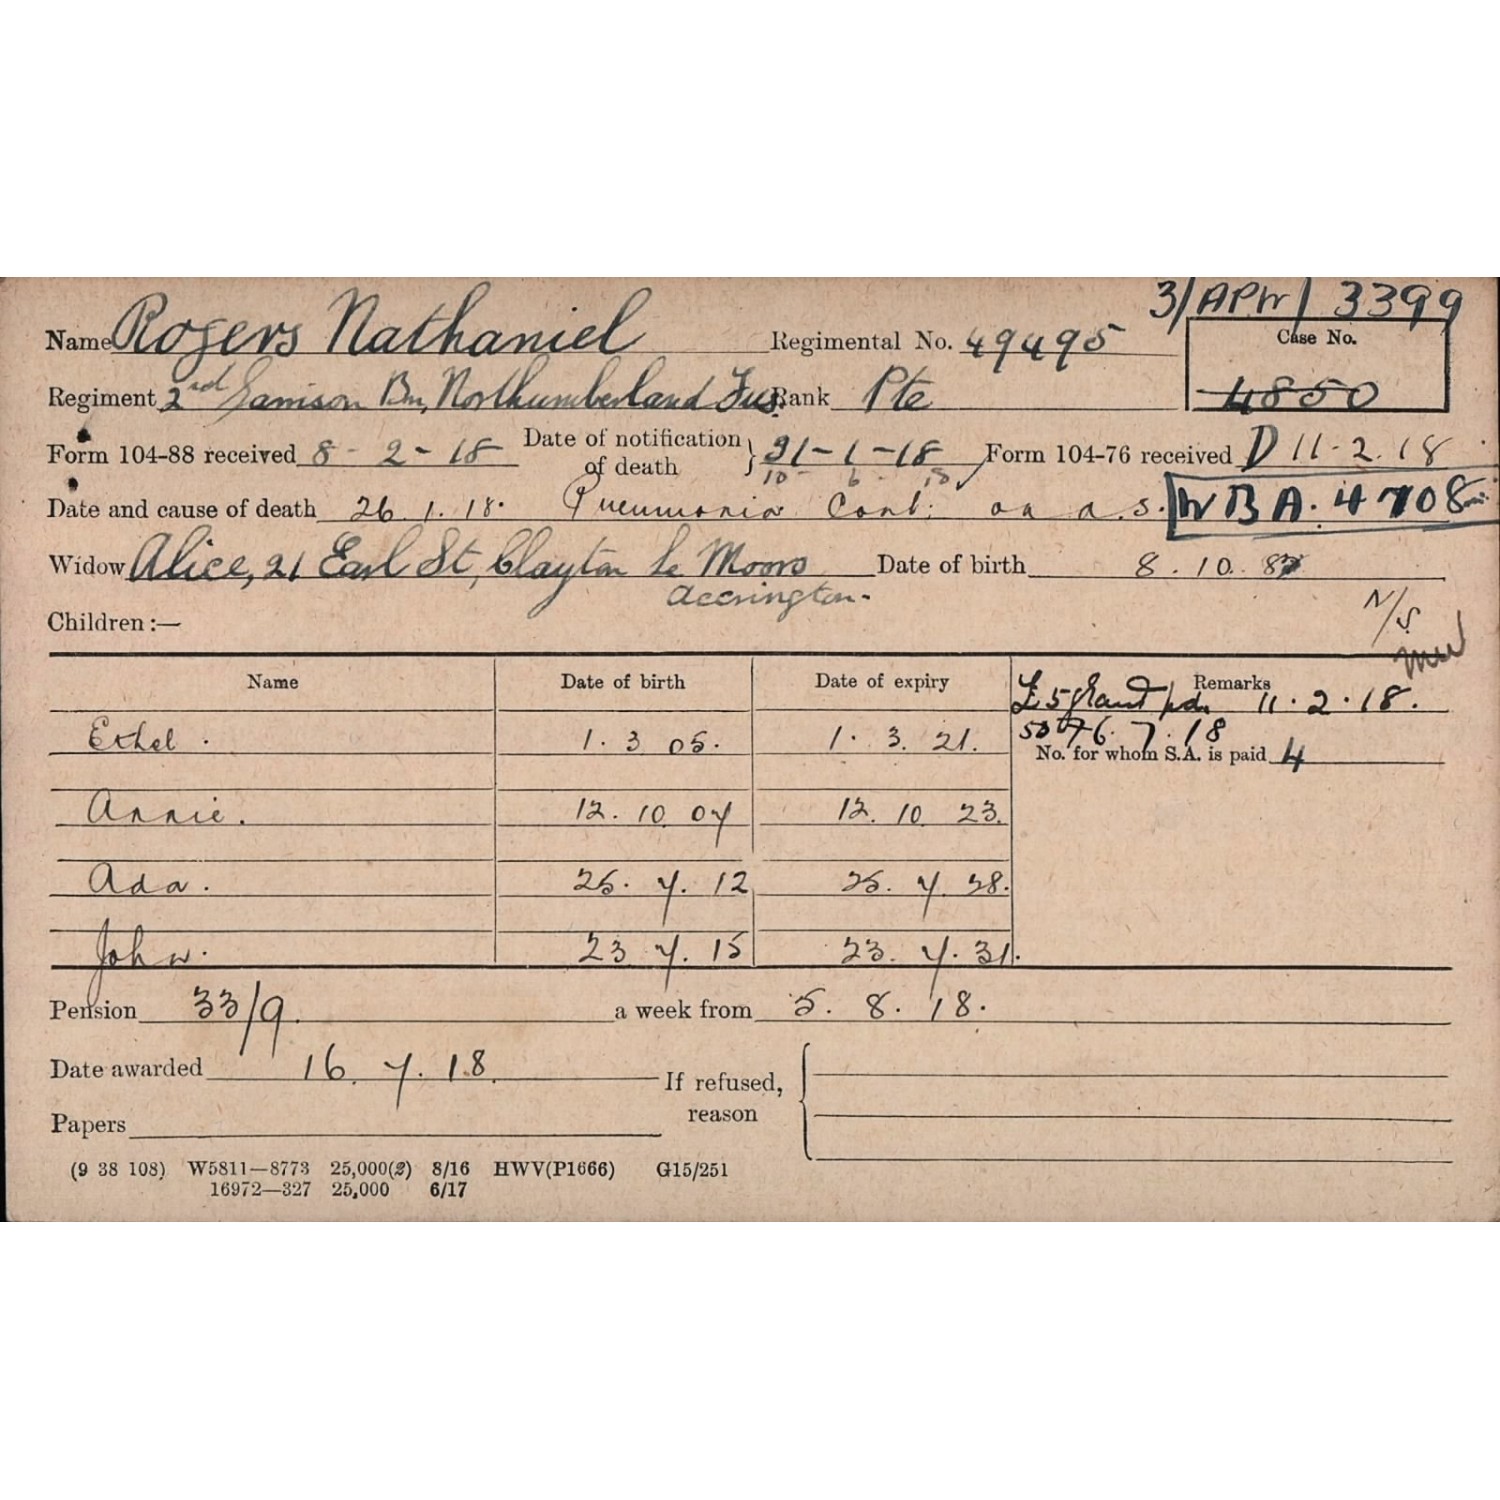 3/APW/ 3399
Name Rogers Nathaniel Regimental No. 49495 Case No.
Regiment 2nd Garrison Bn, Northumberland Fus. Rank Pte 4850
Form 104-88 received 8-2-18 Date of notification of death } 31-1-18 Form 104-76 received D 11.2.18
10 - 6 - 18
Date and cause of death 26.1.18. Pneumonia Cont. on a.s. WBA. 4708
Widow Alice, 21 Earl St, Clayton Le Moors Date of birth 8.10.83
Accrington.
Children :— N/S
Name Date of birth Date of expiry Remarks
£5 grant pd. 11.2.18.
Ethel. 1.3 05. 1.3.21. 6.7.18
No. for whom S.A. is paid 4
Annie. 12.10 07 12.10 23.
Ada. 25.7.12 25.7 28.
John. 23 7.15 23.7.31.
Pension 33/9. a week from 5.8.18.
Date awarded 16.7.18. If refused, reason
Papers
(9 38 108) W5811—8773 25,000(2) 8/16 HWV(P1666) G15/251
16972—327 25,000 6/17